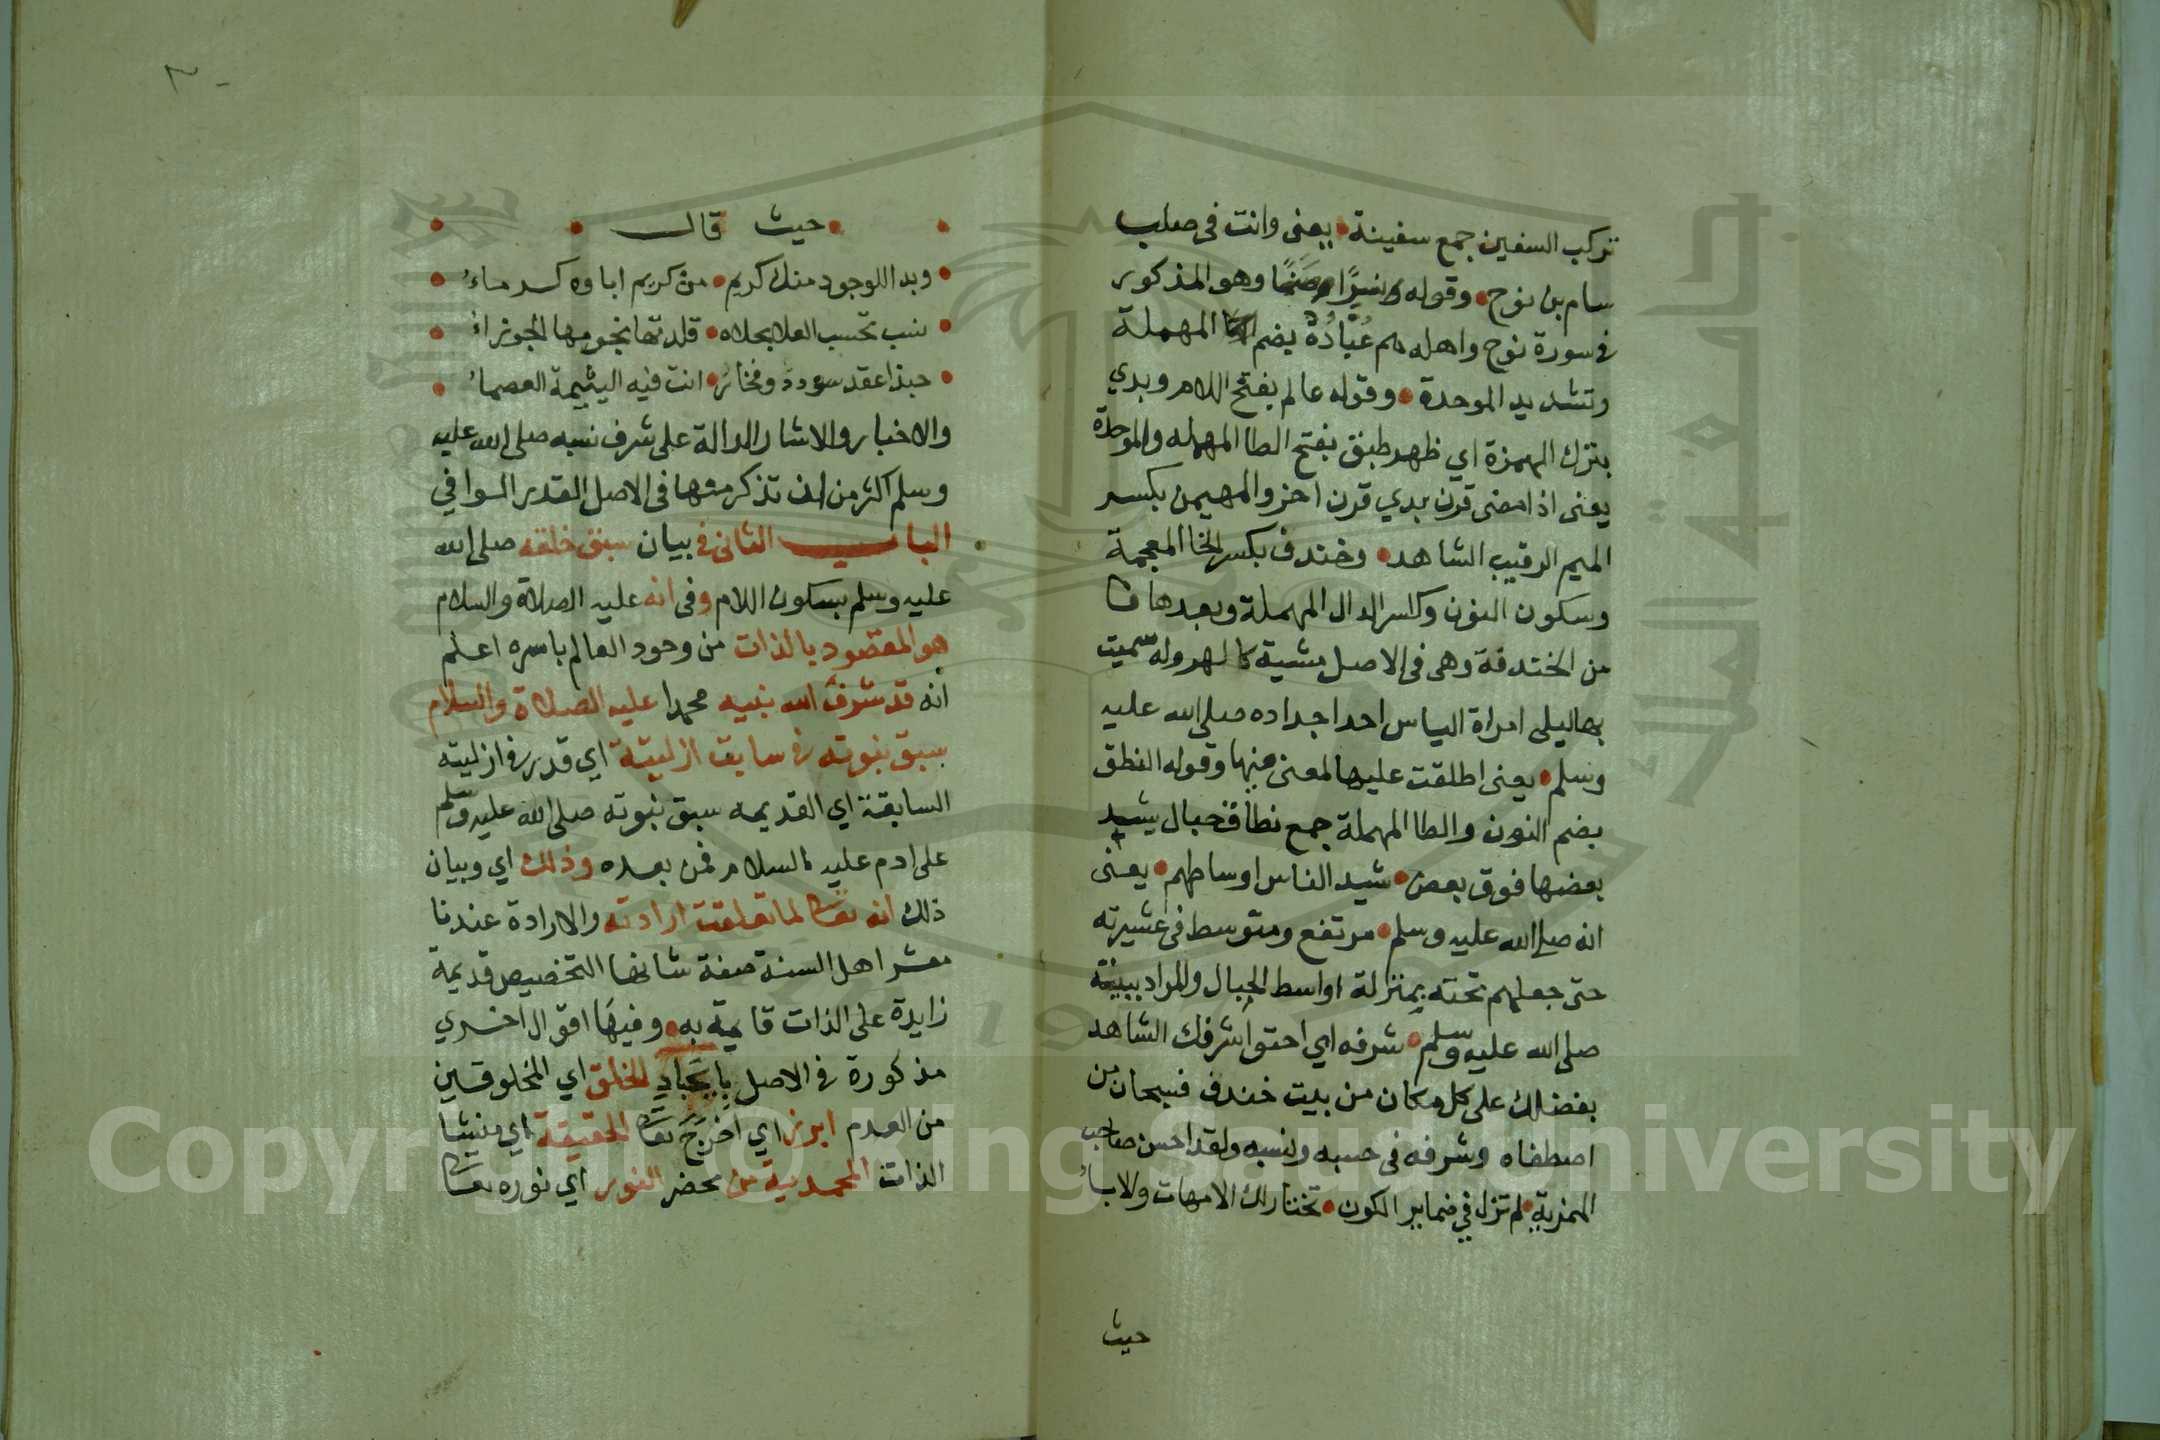 تركب السفين جمع سفينة • يعنى وانت فى صلب
سام بن نوح • وقوله نسرًا وصنمًا وهو المذكور
فى سورة نوح واهله هم عُبّادُهُ بضم المهملة
وتشديد الموحدة • وقوله عالم بفتح اللام وبدي
بترك الهمزة اي ظهر طبق بفتح الطا المهمله والموحدة
يعنى اذا مضى قرن بدي قرن اخر والمهيمن بكسر
الميم الرقيب الشاهد • وخندف بكسر الخا المعجمة
وسكون النون وكسر الدال المهملة وبعدها فا
من الخندفة وهى فى الاصل مشية كالهروله سميت
بها ليلى امراة الياس احد اجداده صلى الله عليه
وسلم • يعنى اطلقت عليها لمعنى فيها وقوله النطق
بضم النون والطا المهملة جمع نطاق حبال يشد
بعضها فوق بعض • شيد الناس اوساطهم • يعنى
انه صلى الله عليه وسلم • مرتفع ومتوسط فى عشيرته
حتى جعلهم تحته بمنزلة اواسط الجبال والمراد ببيته
صلى الله عليه وسلم • شرفه اي احتوا شرفك الشاهد
بفضلك على كل مكان من بيت خندف فسبحان من
اصطفاه وشرفه فى حسبه ونسبه ولقد احسن صاحب
الهمزية لم تزل في ضماير الكون • تختار لك الامهات والاباءُ
حيث
• حيث قال •
• وبدا للوجود منك كريم • من كريم اباوه كرماءُ •
• نسب تحسب العلا بحلاه • قلدتها نجومها الجوزاءُ •
• حبذا عقد سودد وفخارُ • انت فيه اليتيمة العصماءُ •
والاخبار والاثار الدالة على شرف نسبه صلى الله عليه
وسلم اكثر من ان تذكر منها فى الاصل القدر الوافي
الباب الثانى فى بيان سبق خلقه صلى الله
عليه وسلم بسكون اللام وفى انه عليه الصلاة والسلام
هو المقصود بالذات من وجود العالم باسره اعلم
انه قد شرف الله نبيه محمدا عليه الصلاة والسلام
بسبق نبوته فى سابق ازليته اي قدر فى ازليته
السابقة اي القديمه سبق نبوته صلى الله عليه وسلم
على ادم عليه السلام فمن بعده وذلك اي وبيان
ذلك انه تعالى لما تعلقت ارادته والارادة عندنا
معشر اهل السنة صفة شانها التخصيص قديمة
زايدة على الذات قايمة به • وفيها اقوال اخري
مذكورة فى الاصل بايجاد الخلق اي المخلوقين
من العدم ابرز اي اَخْرَجَ تعالى الحقيقة اي منشا
الذات المحمدية من محض النور اي نوره تعالى